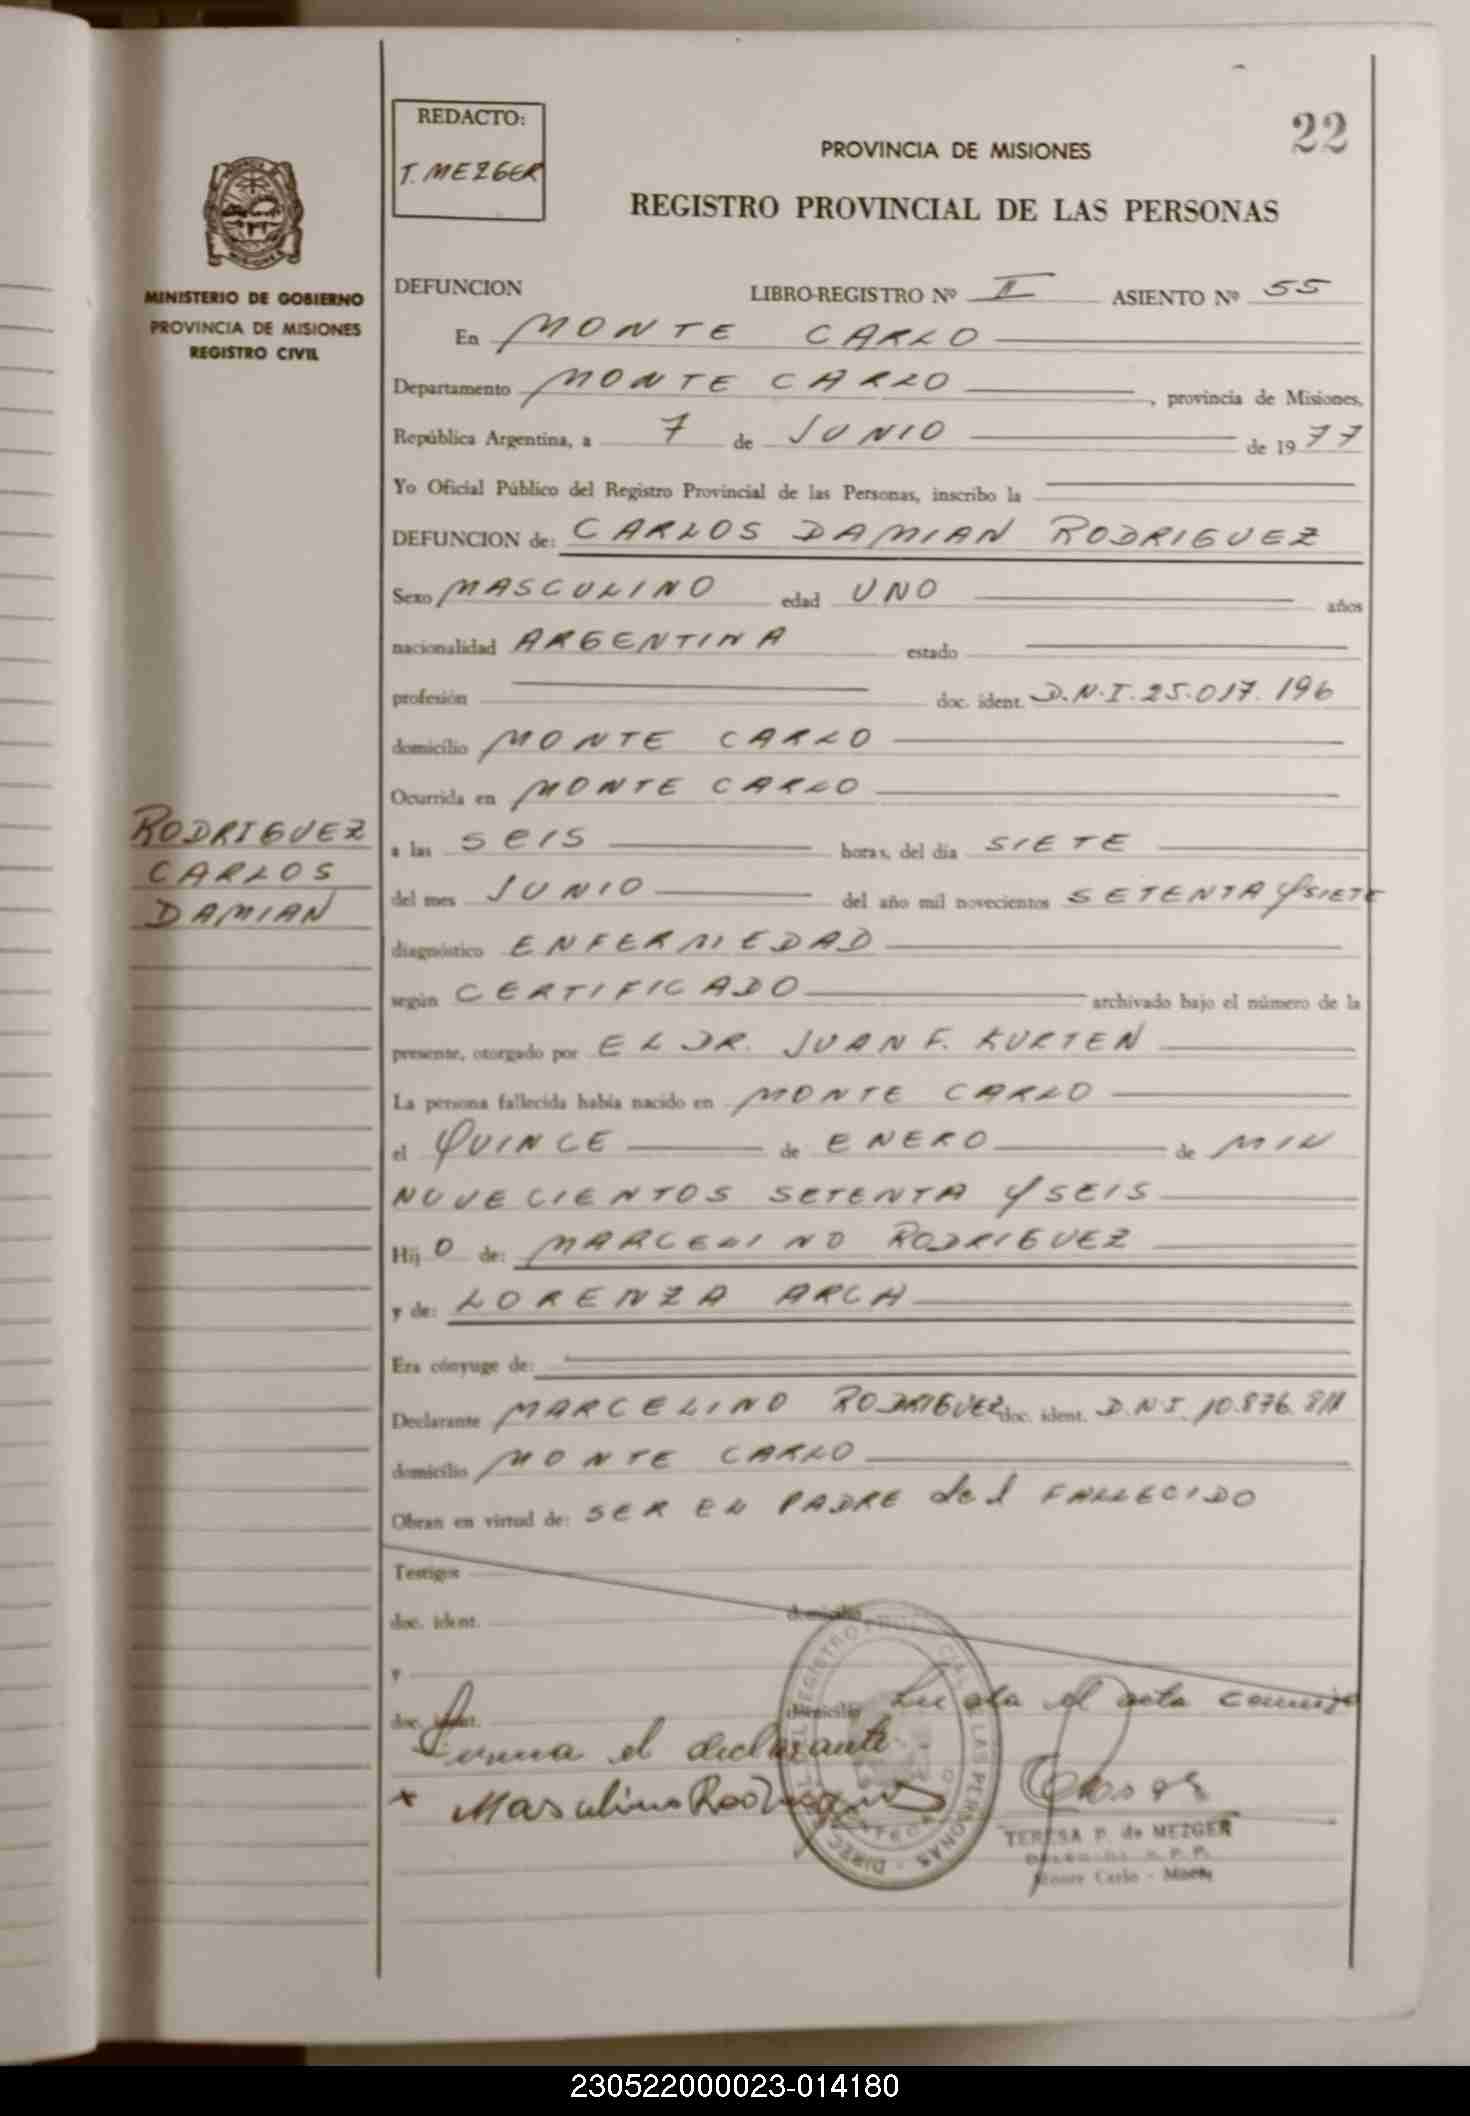 22
REDACTO:
T. MEZGER
PROVINCIA DE MISIONES
REGISTRO PROVINCIAL DE LAS PERSONAS
MINISTERIO DE GOBIERNO
PROVINCIA DE MISIONES
REGISTRO CIVIL
DEFUNCION LIBRO-REGISTRO Nº II ASIENTO Nº 55
En MONTE CARLO
Departamento MONTE CARLO, provincia de Misiones,
República Argentina, a 7 de JUNIO de 1977
Yo Oficial Público del Registro Provincial de las Personas, inscribo la
DEFUNCION de: CARLOS DAMIAN RODRIGUEZ
Sexo MASCULINO edad UNO años
nacionalidad ARGENTINA estado
profesión doc. ident. D.N.I. 25.017.196
domicilio MONTE CARLO
Ocurrida en MONTE CARLO
RODRIGUEZ
CARLOS
DAMIAN
a las SEIS horas, del día SIETE
del mes JUNIO del año mil novecientos SETENTA Y SIETE
diagnóstico ENFERMEDAD
según CERTIFICADO archivado bajo el número de la
presente, otorgado por EL DR. JUAN F. KURTEN
La persona fallecida había nacido en MONTE CARLO
el QUINCE de ENERO de MIL
NOVECIENTOS SETENTA Y SEIS
Hij O de: MARCELINO RODRIGUEZ
y de: LORENZA ARCH
Era cónyuge de:
Declarante MARCELINO RODRIGUEZ doc. ident. D.N.I. 10.876.811
domicilio MONTE CARLO
Obran en virtud de: SER EL PADRE del FALLECIDO
Testigos
doc. ident. domicilio
y
doc. ident. domicilio Leida el acta conmigo
Firma el declarante
x Marselino Rodriguez
DIREC. REGISTRO PROVINCIAL DE LAS PERSONAS
TERESA P. de MEZGER
DELEG. R. P. P.
Monte Carlo - Mnes.
230522000023-014180